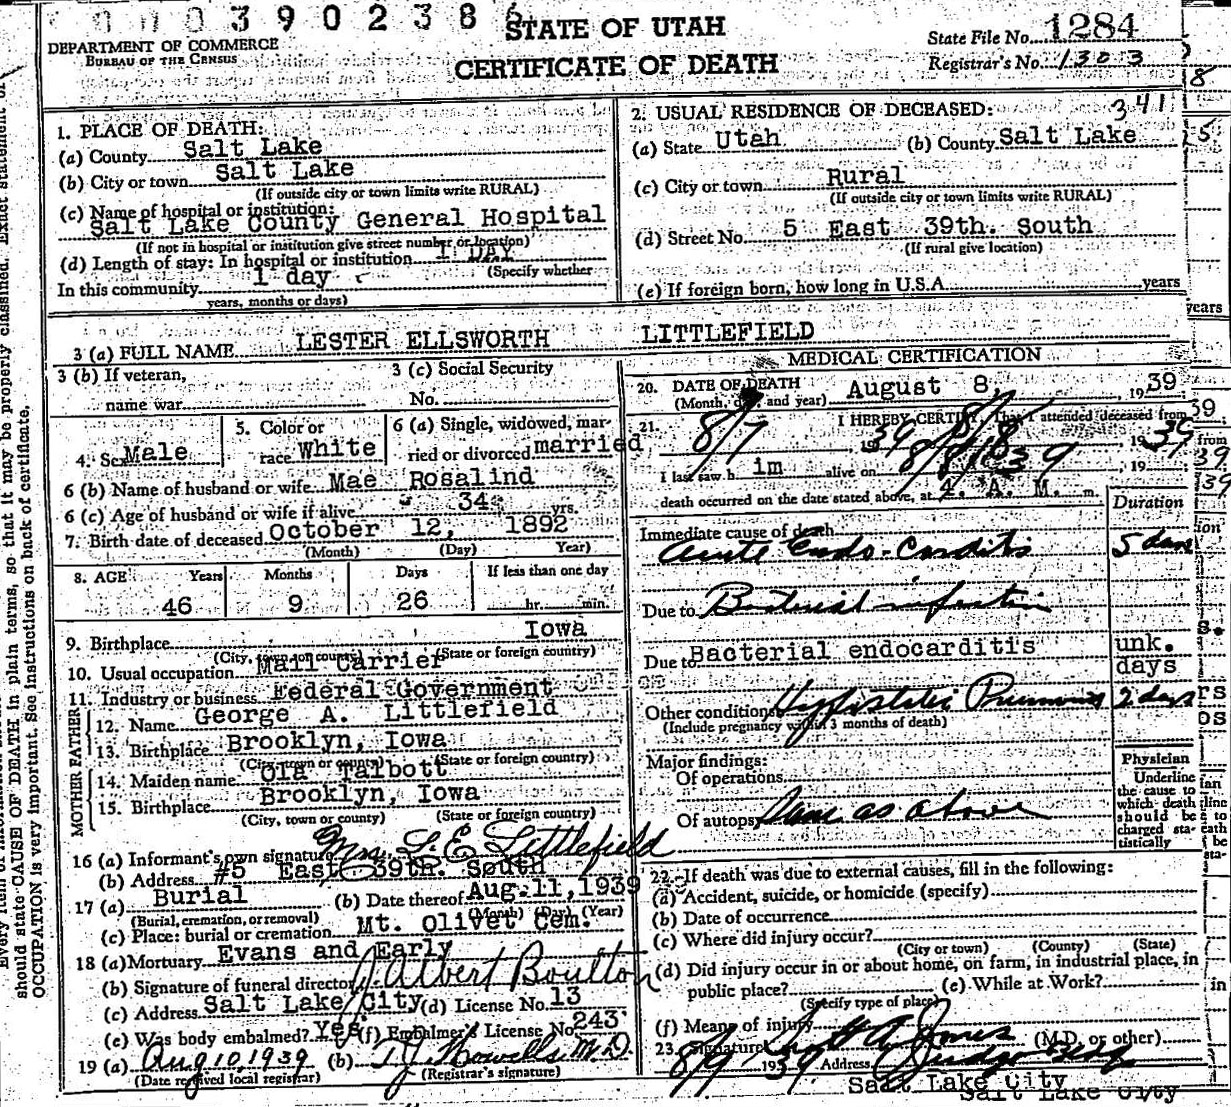 0 0 0 3 9 0 2 3 8 6
STATE OF UTAH
CERTIFICATE OF DEATH
DEPARTMENT OF COMMERCE
BUREAU OF THE CENSUS
State File No. 1284
Registrar's No. 1303
341
1. PLACE OF DEATH:
(a) County Salt Lake
(b) City or town Salt Lake
(If outside city or town limits write RURAL)
(c) Name of hospital or institution:
Salt Lake County General Hospital
(If not in hospital or institution give street number or location)
(d) Length of stay: In hospital or institution 1 DAY
(Specify whether
In this community 1 day
years, months or days)
2. USUAL RESIDENCE OF DECEASED:
(a) State Utah (b) County Salt Lake
(c) City or town Rural
(If outside city or town limits write RURAL)
(d) Street No. 5 East 39th. South
(If rural give location)
(e) If foreign born, how long in U.S.A. years
3 (a) FULL NAME LESTER ELLSWORTH LITTLEFIELD
3 (b) If veteran,
name war
3 (c) Social Security
No.
4. Sex Male
5. Color or
race White
6 (a) Single, widowed, mar-
ried or divorced married
6 (b) Name of husband or wife Mae Rosalind
6 (c) Age of husband or wife if alive 34 yrs.
7. Birth date of deceased October 12, 1892
(Month) (Day) Year)
8. AGE Years Months Days If less than one day
46 9 26 hr. min.
9. Birthplace Iowa
(City, town or county) (State or foreign country)
10. Usual occupation Mail Carrier
11. Industry or business Federal Government
FATHER
12. Name George A. Littlefield
13. Birthplace Brooklyn, Iowa
(City, town or county) (State or foreign country)
MOTHER
14. Maiden name Ola Talbott
15. Birthplace Brooklyn, Iowa
(City, town or county) (State or foreign country)
16 (a) Informant's own signature Mrs. L. E. Littlefield
(b) Address #5 East 39th. South
17 (a) Burial (b) Date thereof Aug. 11, 1939
(Burial, cremation, or removal) (Month) (Day) (Year)
(c) Place: burial or cremation Mt. Olivet Cem.
18 (a) Mortuary Evans and Early
(b) Signature of funeral director J. Albert Boulton
(c) Address Salt Lake City (d) License No. 13
(e) Was body embalmed? Yes (f) Embalmer's License No. 243
19 (a) Aug 10, 1939 (b) T J Howells M.D.
(Date received local registrar) (Registrar's signature)
MEDICAL CERTIFICATION
20. DATE OF DEATH August 8, 1939
(Month, day and year)
21. I HEREBY CERTIFY That I attended deceased from
8/7 , 1939 8/8 , 1939
I last saw h im alive on 8/8/39 , 19
death occurred on the date stated above, at 4. A. M. m.
Duration
Immediate cause of death
Acute Endo-carditis 5 days
Due to Bacterial infection
Due to Bacterial endocarditis unk.
days
Other conditions Hypostatic Pneumonia 2 days
(Include pregnancy within 3 months of death)
Major findings:
Of operations
Of autopsy Same as above
Physician
Underline
the cause to
which death
should be
charged sta-
tistically
22. If death was due to external causes, fill in the following:
(a) Accident, suicide, or homicide (specify)
(b) Date of occurrence
(c) Where did injury occur?
(City or town) (County) (State)
(d) Did injury occur in or about home, on farm, in industrial place, in
public place? (e) While at Work?
(Specify type of place)
(f) Means of injury
23. Signature Jones (M.D. or other)
8/9 1939 Address Judge Bldg
Salt Lake City
Salt Lake City
should state CAUSE OF DEATH in plain terms, so that it may be properly classified. Exact statement of
OCCUPATION is very important. See instructions on back of certificate.